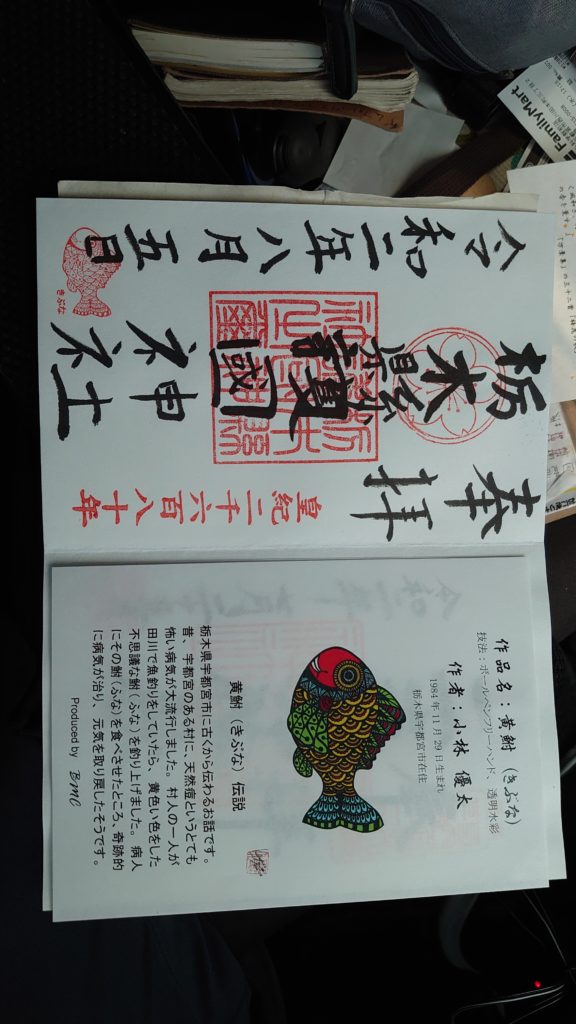 奉拝
皇紀二千六百八十年
栃木縣護國神社
令和二年八月五日
きぶな
作品名:黄鮒 (きぶな)
技法:ボールペンフリーハンド、透明水彩
作者:小林 優太
1984年11月29日生まれ
栃木県宇都宮市在住
黄鮒(きぶな)伝説
栃木県宇都宮市に古くから伝わるお話です。
昔、宇都宮のある村に、天然痘というとても
怖い病気が大流行しました。村人の一人が
田川で魚釣りをしていたら、黄色い色をした
不思議な鮒(ふな)を釣り上げました。病人
にその鮒(ふな)を食べさせたところ、奇跡的
に病気が治り、元気を取り戻したそうです。
Produced by BMC
FamilyMart